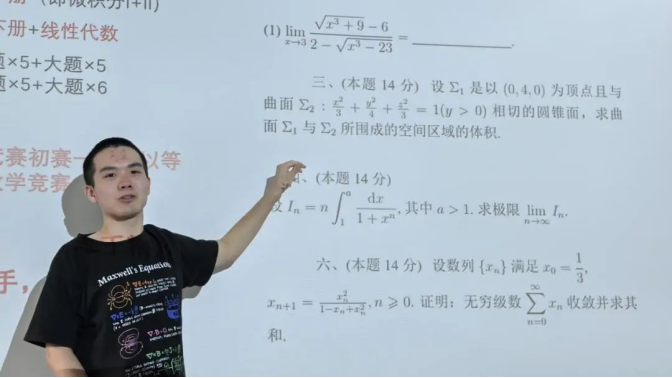 册（即微积分I+II)
下册+线性代数
×5+大题×5
×5+大题×6
竞赛初赛一 以等
学竞赛
手，
(1) lim x→3 √(x³+9) − 6 / 2 − √(x³−23) = ________.
三、(本题 14 分) 设 Σ₁ 是以 (0,4,0) 为顶点且与
曲面 Σ₂ : x²/3 + y²/4 + z²/3 = 1(y > 0) 相切的圆锥面，求曲
面 Σ₁ 与 Σ₂ 所围成的空间区域的体积.
、(本题 14 分)
Iₙ = n ∫₁ᵃ dx/(1+xⁿ), 其中 a > 1. 求极限 lim n→∞ Iₙ.
六、(本题 14 分) 设数列 {xₙ} 满足 x₀ = 1/3,
xₙ₊₁ = xₙ²/(1−xₙ+xₙ²), n ⩾ 0. 证明：无穷级数 ∑ n=0 ∞ xₙ 收敛并求其
和.
Maxwell's Equations